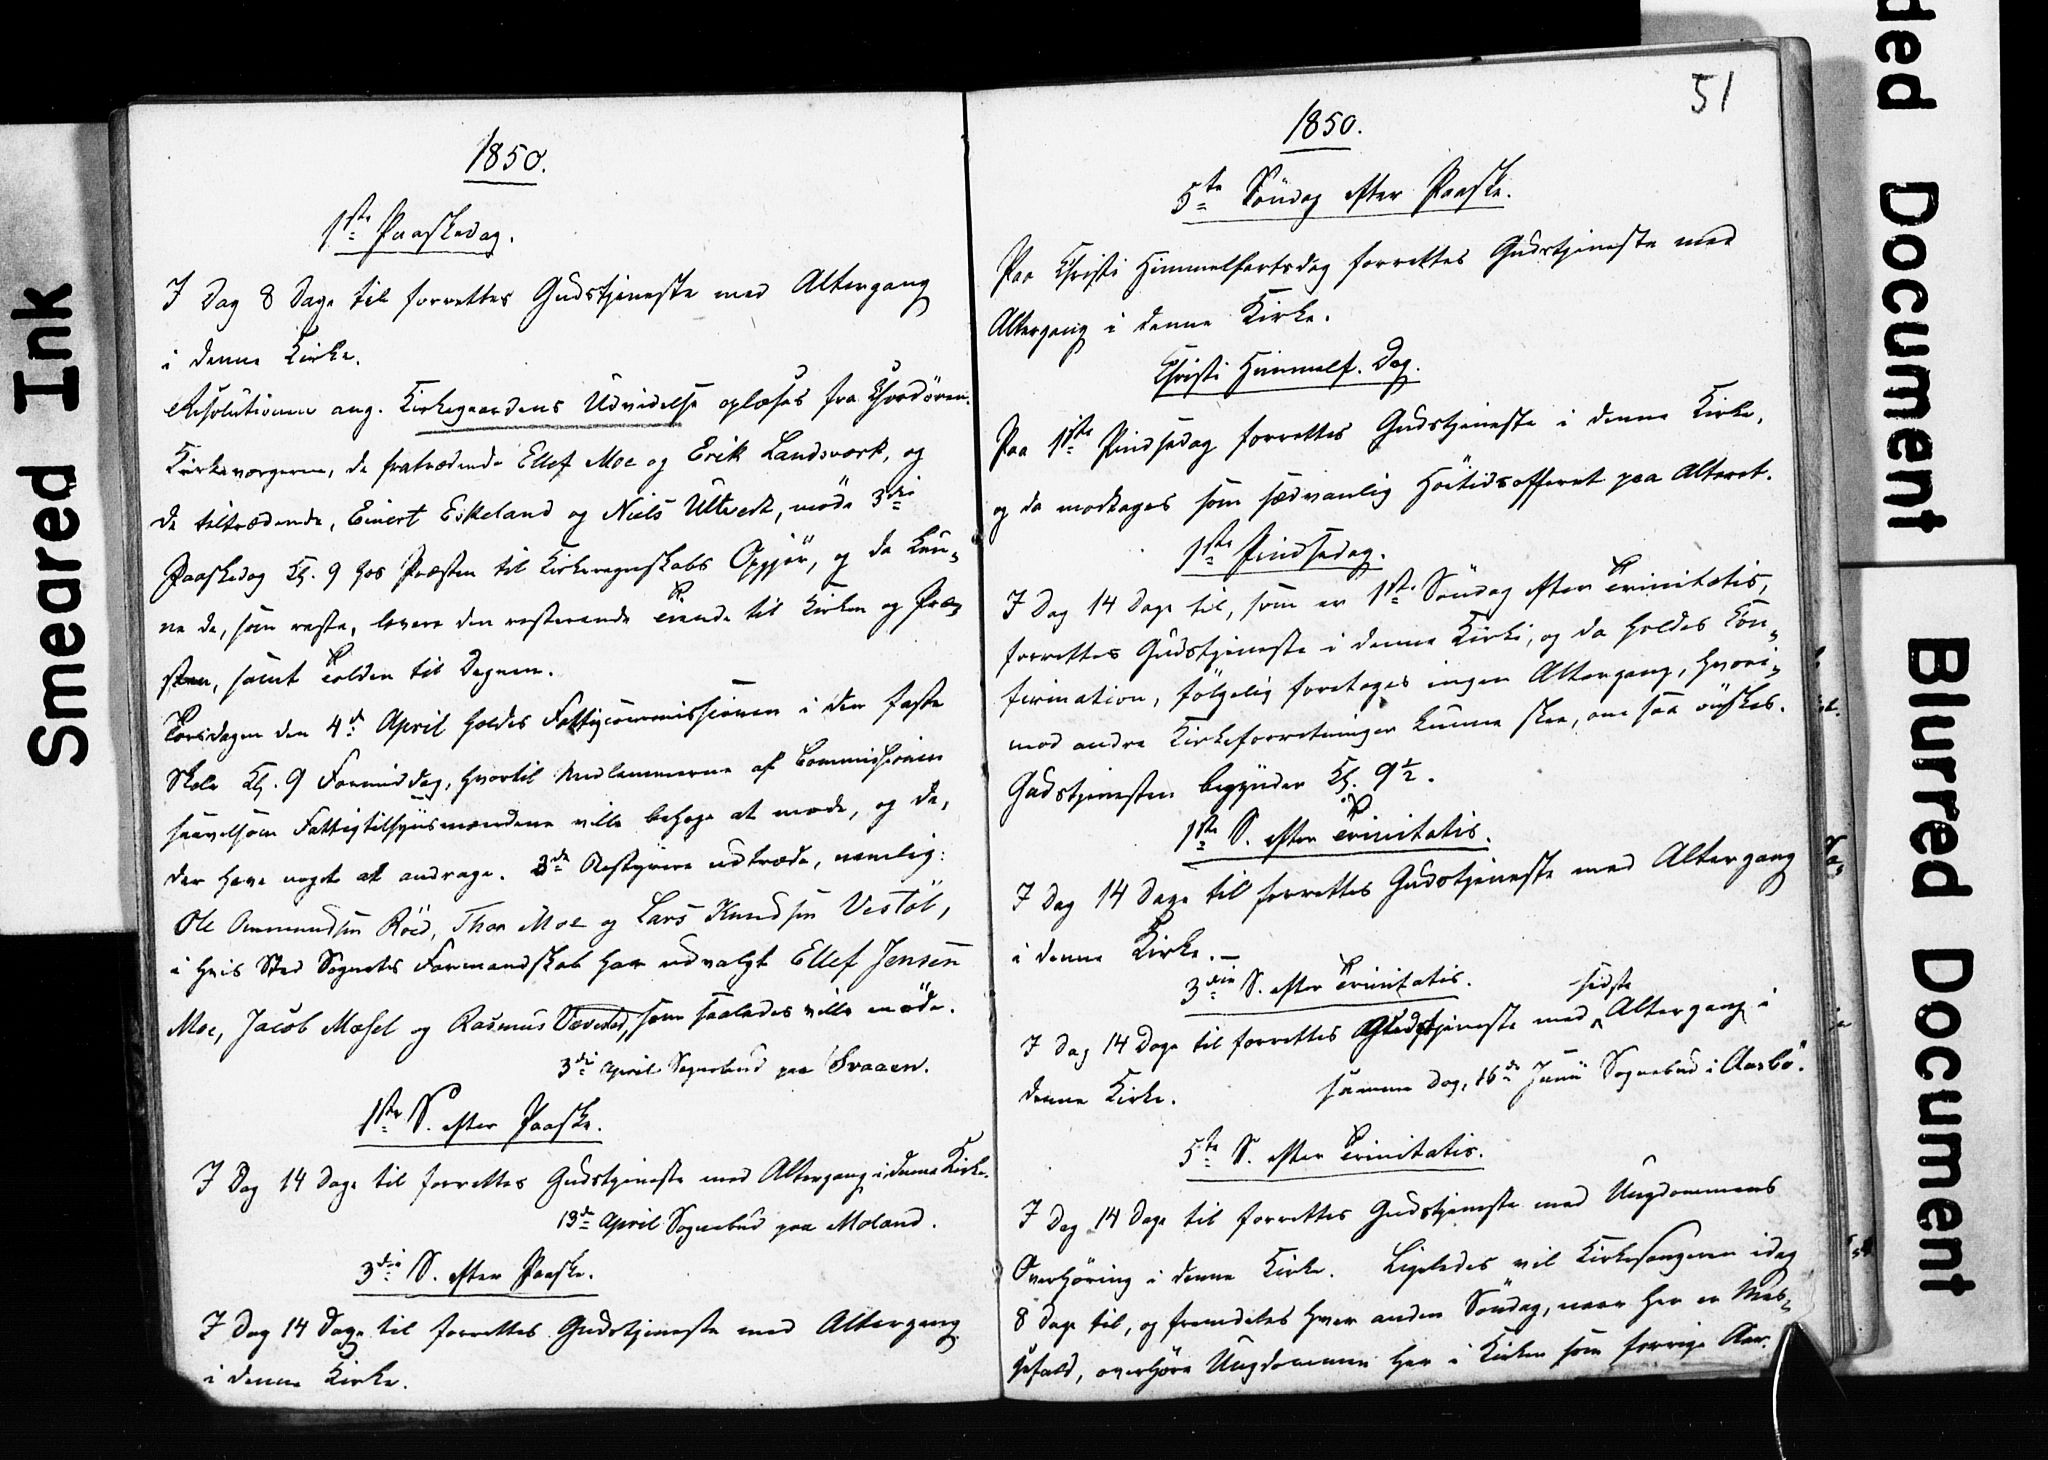 1850.
1ste Paaskedag.
I Dag 8 Dage til forrettes Gudstjeneste med Altergang
i denne Kirke.
Resolutionen ang. Kirkegaardens Udvidelse oplæses fra Chordören.
Kirkeværgerne, de fratrædende Ellef Moe og Erik Landsverk, og
de tiltrædende, Einert Eskeland og Niels Ultvedt, møde 3die
Paaskedag Kl. 9 hos Præsten til Kirkeregnskabs Opgjör, og da kun-
ne de, som reste, levere den resterende Tiende til Kirken og Præ-
sten, samt Tolden til Degnen.
Torsdagen den 4de April holdes Fattigcommissionen i den faste
Skole Kl. 9 Formiddag, hvortil Medlemmerne af Commissionen
saavelsom Fattigtilsynsmændene ville behage at møde, og de,
der have noget at andrage. 3de Bestyrere udtræde, nemlig:
Ole Ammundsen Röed, Thor Moe og Lars Knudsen Vestöl,
i hvis Sted Sognets Formandskab har udvalgt Ellef Jensen
Moe, Jacob Mosel og Rasmus Vævestad, som saaledes ville møde.
3die April Sognebud paa Svaaen.
1ste S. efter Paaske.
I Dag 14 Dage til forrettes Gudstjeneste med Altergang i denne Kirke.
13de April Sognebud paa Moland.
3die S. efter Paaske.
I Dag 14 Dage til forrettes Gudstjeneste med Altergang
i denne Kirke.
51
1850.
5te Söndag efter Paaske.
Paa Christi Himmelfartsdag forrettes Gudstjeneste med
Altergang i denne Kirke.
Christi Himmelf. Dag.
Paa 1ste Pindsedag forrettes Gudstjeneste i denne Kirke,
og da modtages som sædvanlig Höitidsofferet paa Alteret.
1ste Pindsedag.
I Dag 14 Dage til, som er 1ste Söndag efter Trinitatis,
forrettes Gudstjeneste i denne Kirke, og da holdes Con-
firmation, fölgelig foretages ingen Altergang, hvori-
mod andre Kirkeforretninger kunne skee, om saa önskes.
Gudstjenesten begynder Kl. 9½.
1ste S. efter Trinitatis.
I Dag 14 Dage til forrettes Gudstjeneste med Altergang
i denne Kirke.
3die S. efter Trinitatis.
I Dag 14 Dage til forrettes Gudstjeneste med sidste Altergang i
denne Kirke. samme Dag, 16de Junii Sognebud i Aasbö.
5te S. efter Trinitatis.
I Dag 14 Dage til forrettes Gudstjeneste med Ungdommens
Overhöring i denne Kirke. Ligeledes vil Kirkesangeren idag
8 Dage til, og fremdeles hver anden Söndag, naar her er Mes-
sefald, overhöre Ungdommen her i Kirken som forrige Aar.
Smeared Ink
ded Document
Blurred Document